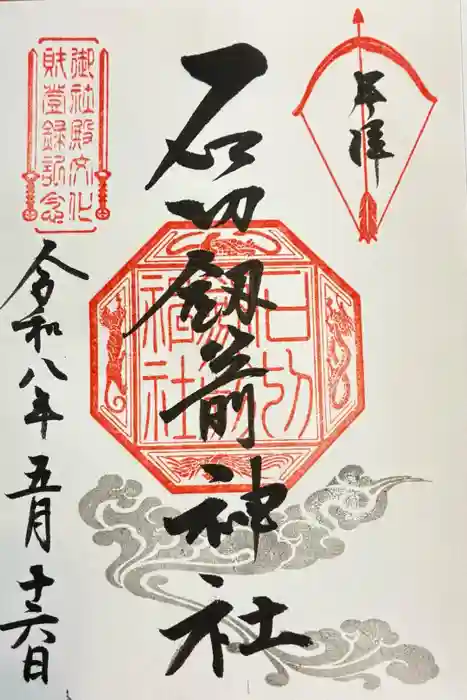 奉拝
石切劔箭神社
石切
劔箭
神社
御社殿文化
財登録記念
令和八年五月十六日